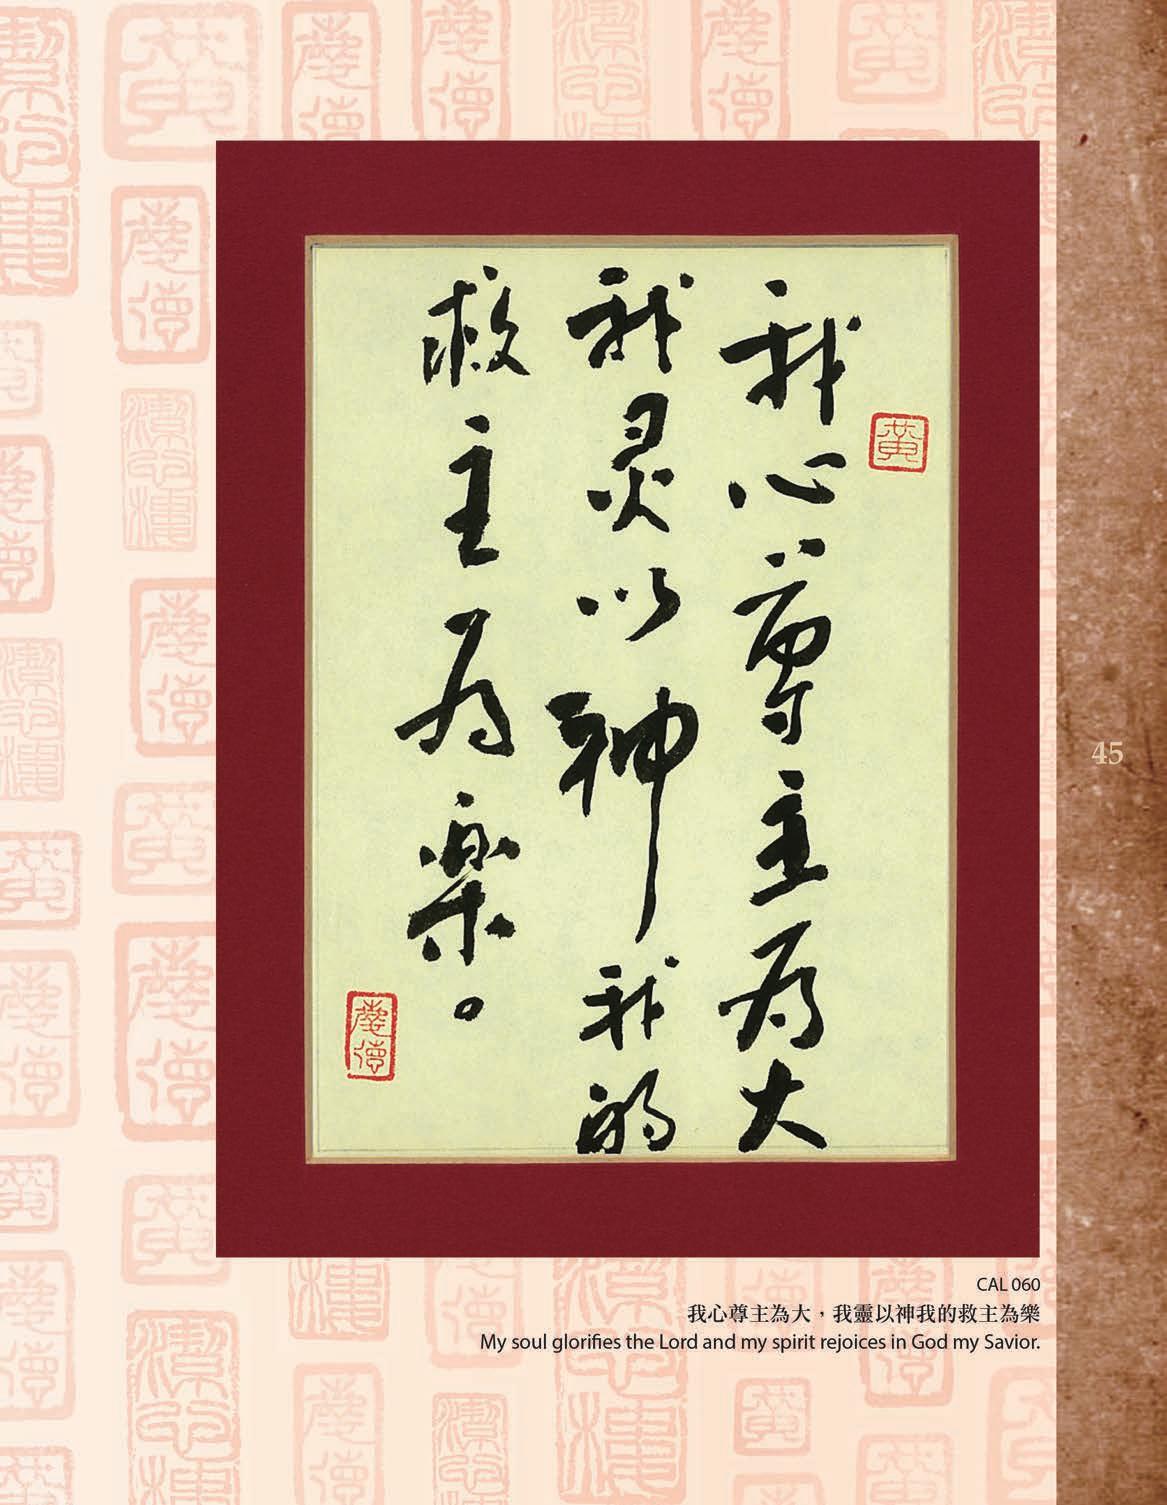 我心尊主為大
我灵以神我的
救主为樂。
黃
慶德
45
CAL 060
我心尊主為大，我靈以神我的救主為樂
My soul glorifies the Lord and my spirit rejoices in God my Savior.